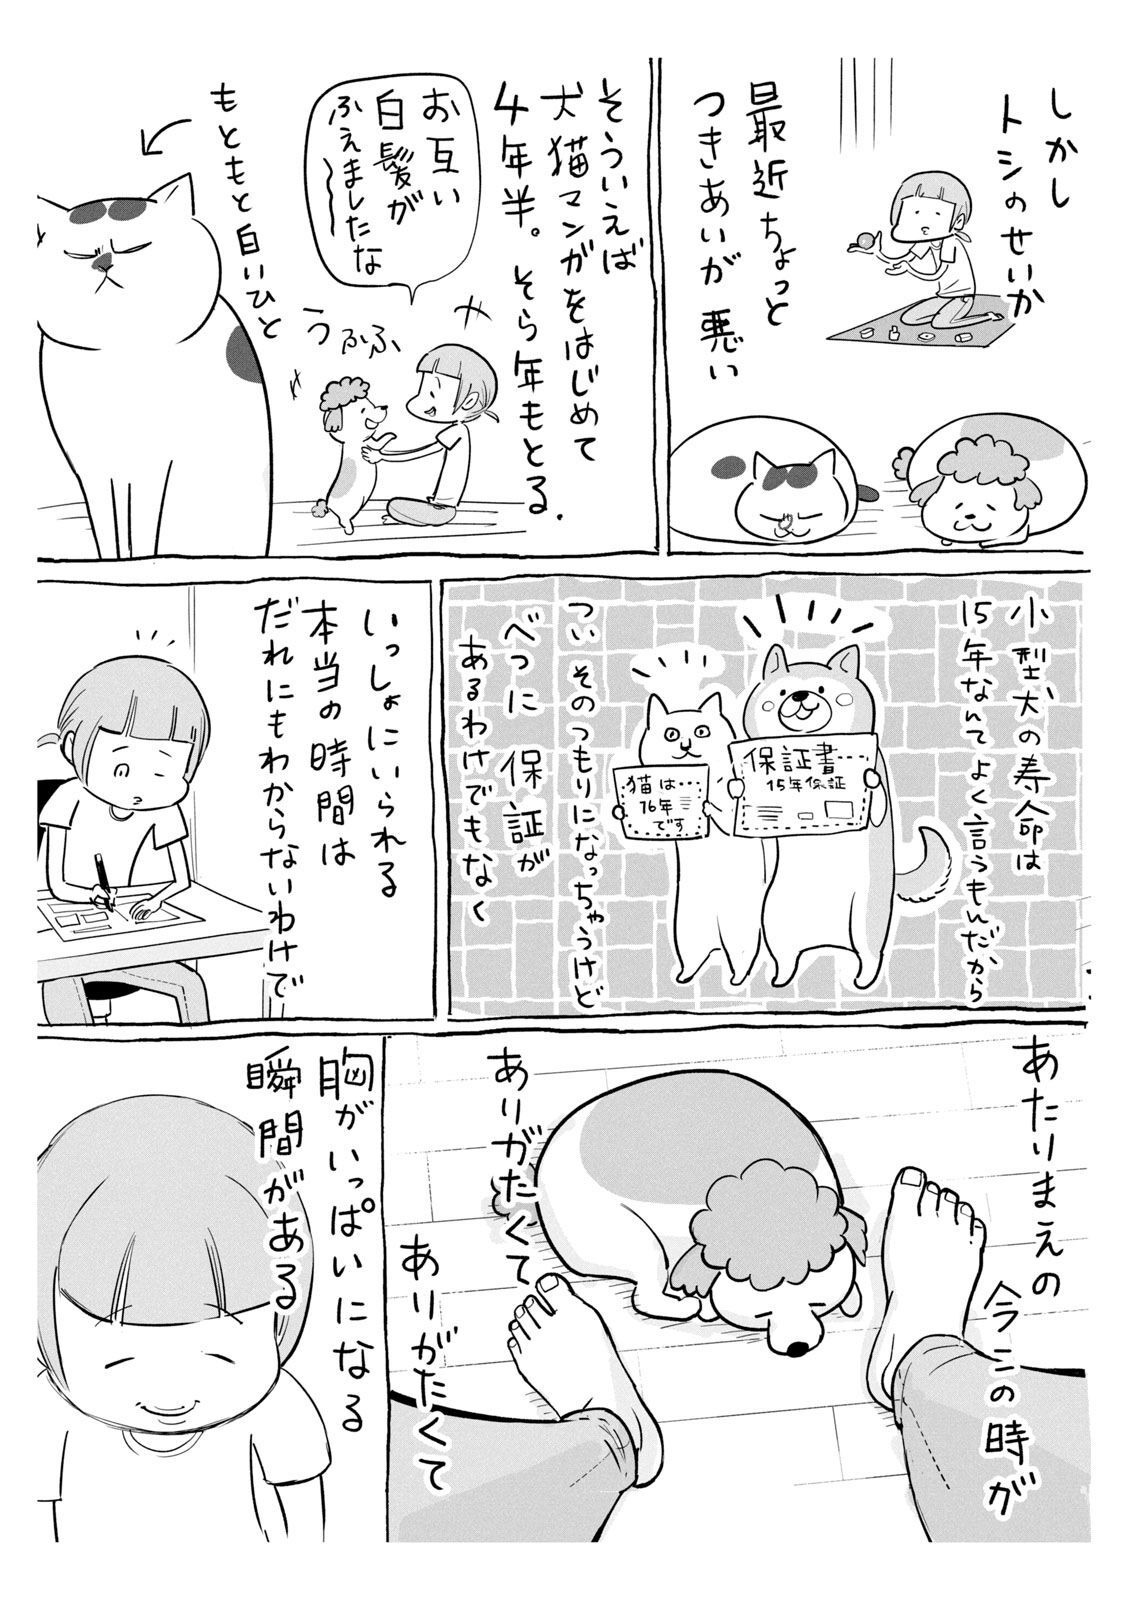 しかし
トシのせいか
最近ちょっと
つきあいが悪い
そういえば
犬猫マンガをはじめて
4年半。そら年もとる.
お互い
白髪が
ふえましたな〜
うふふふ
もともと白いひと
小型犬の寿命は
15年なんてよく言うもんだから
保証書
15年保証
猫は
16年
です
ついそのつもりになっちゃうけど
べつに保証が
あるわけでもなく
いっしょにいられる
本当の時間は
だれにもわからないわけで
あたりまえの
今この時が
ありがたくて
ありがたくて
胸がいっぱいになる
瞬間がある